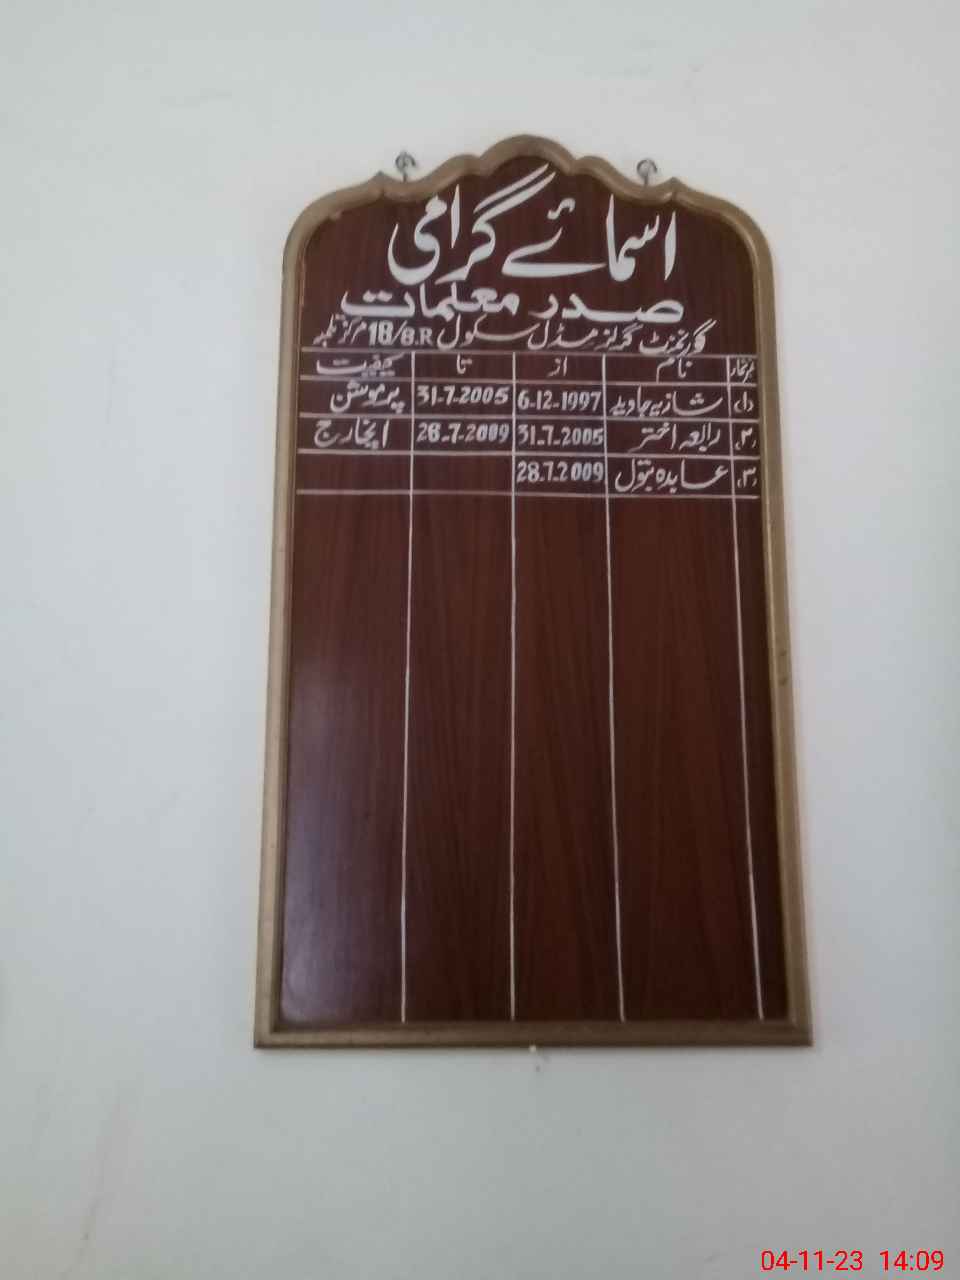 اسمائے گرامی
صدر معلمات
گورنمنٹ گرلز مڈل سکول 18/8.R مرکز تلمبہ
نمبر شمار نام از تا کیفیت
(۱) شازیہ جاوید 6-12-1997 31-7-2005 پرموشن
(۲) رابعہ اختر 31.7.2005 28-7-2009 انچارج
(۳) عابدہ بتول 28.7.2009
04-11-23 14:09